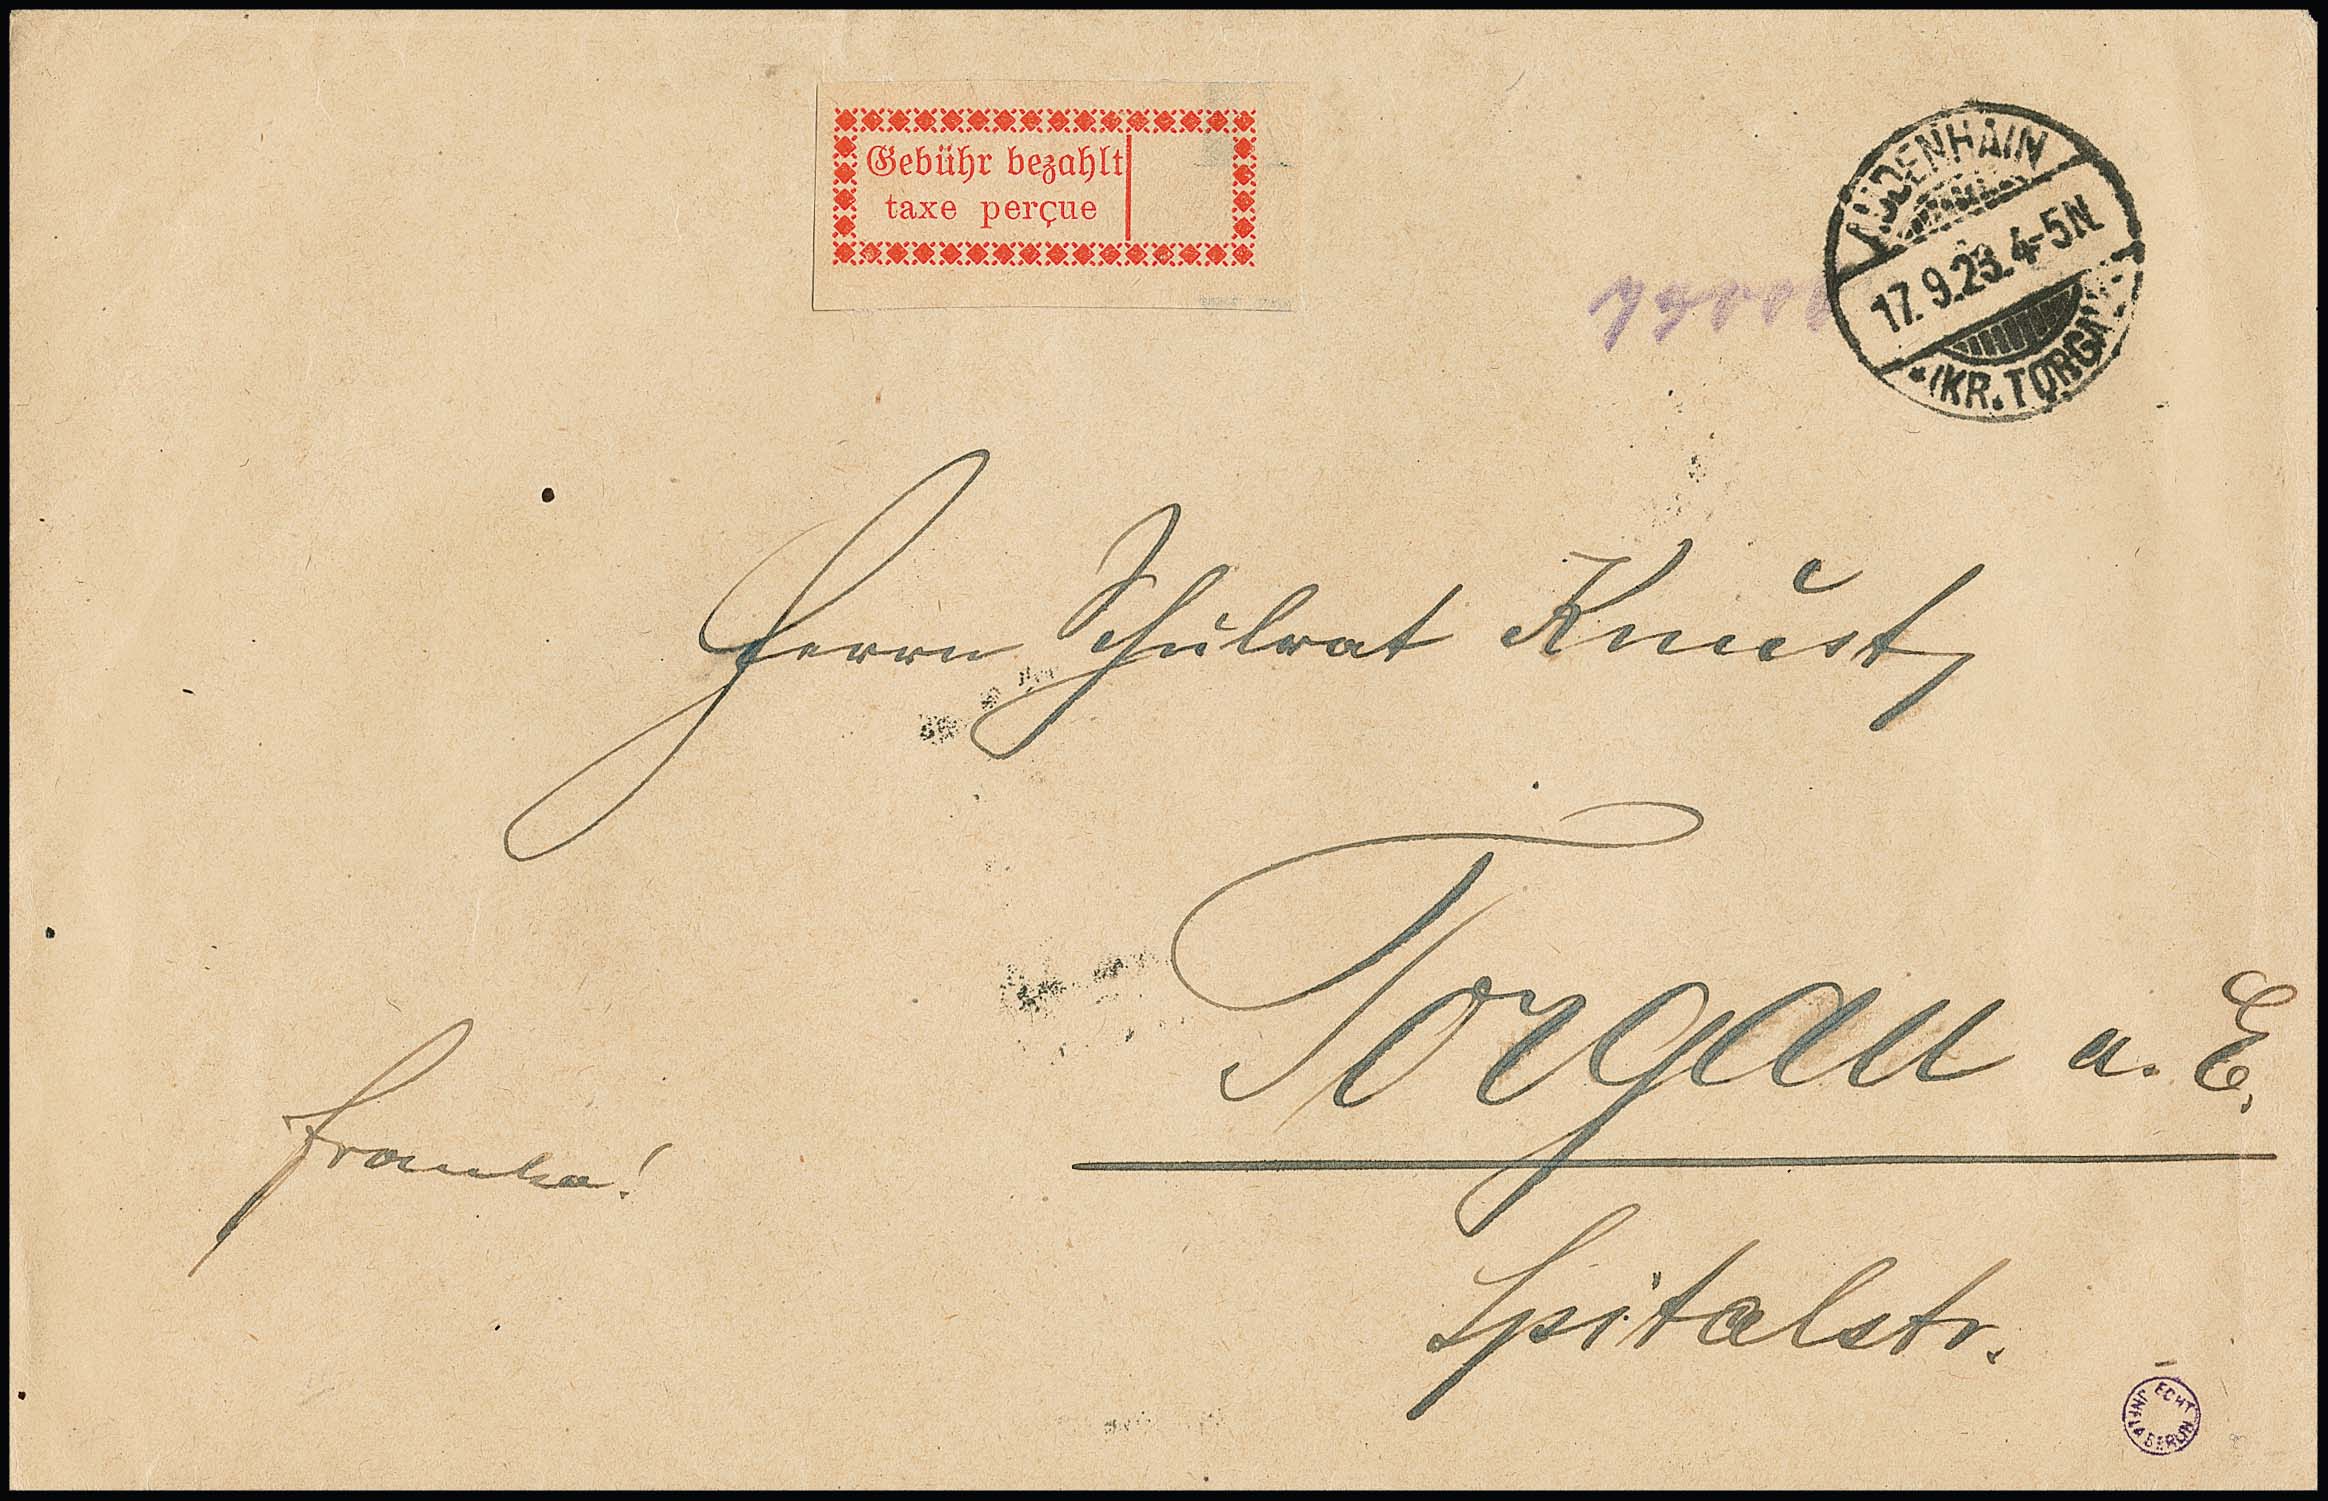 Gebühr bezahlt
taxe perçue
AUDENHAIN
17.9.23.4-5N
* (KR. TORGAU)
Herrn Schulrat Knust,
Torgau a. E.
franko!
Spitalstr.
ECHT
INFLA BERLIN